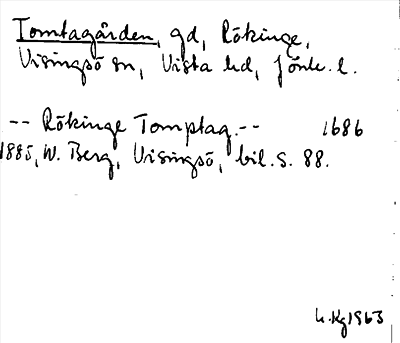 Tomtagården, gd, Rökinge,
Visingsö sn, Vista hd, Jönk. l.
-- Rökinge Tomptag. -- 1686
1885, W. Berg, Visingsö, bil. S. 88.
1963